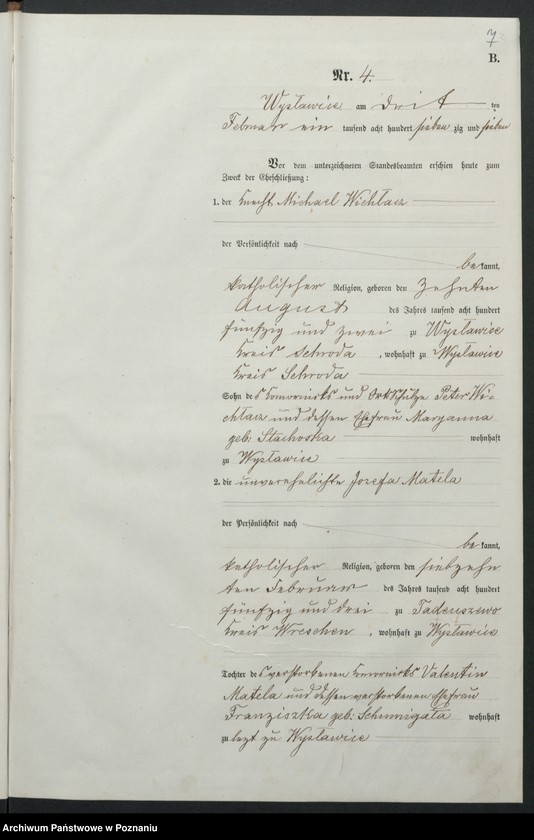 7
B.
Nr. 4.
Wysławice am drit ten
Februar ein tausend acht hundert sieben zig und sieben
Vor dem unterzeichneten Standesbeamten erschien heute zum
Zweck der Eheschließung:
1. der Knecht Michael Wichłacz
der Persönlichkeit nach
be kannt,
katholischer Religion, geboren den zehnten
August des Jahres tausend acht hundert
fünfzig und zwei zu Wysławice
Kreis Schroda, wohnhaft zu Wysławice
Kreis Schroda
Sohn des Komorniks und Ortsschulze Peter Wi-
chłacz und dessen Ehefrau Maryanna
geb: Stachoska wohnhaft
zu Wysławice
2. die unverehelichte Jozefa Matela
der Persönlichkeit nach
be kannt,
katholischer Religion, geboren den siebzehn
ten Februar des Jahres tausend acht hundert
fünfzig und drei zu Tadeuszewo
Kreis Wreschen, wohnhaft zu Wysławice
Tochter des verstorbenen Komorniks Valentin
Matela und dessen verstorbenen Ehefrau
Franziszka geb: Schmigała wohnhaft
zu lezt zu Wysławice
Archiwum Państwowe w Poznaniu